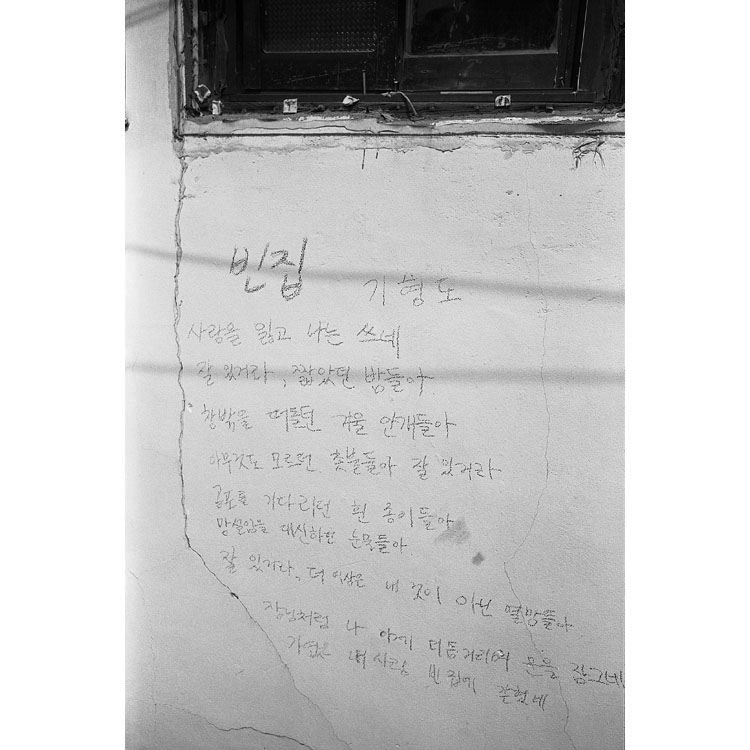 빈집
기형도
사랑을 잃고 나는 쓰네
잘 있거라, 짧았던 밤들아
창밖을 떠돌던 겨울 안개들아
아무것도 모르던 촛불들아 잘 있거라
공포를 기다리던 흰 종이들아
망설임을 대신하던 눈물들아
잘 있거라, 더 이상은 내 것이 아닌 열망들아
장님처럼 나 이제 더듬거리며 문을 잠그네
가엾은 내 사랑 빈집에 갇혔네